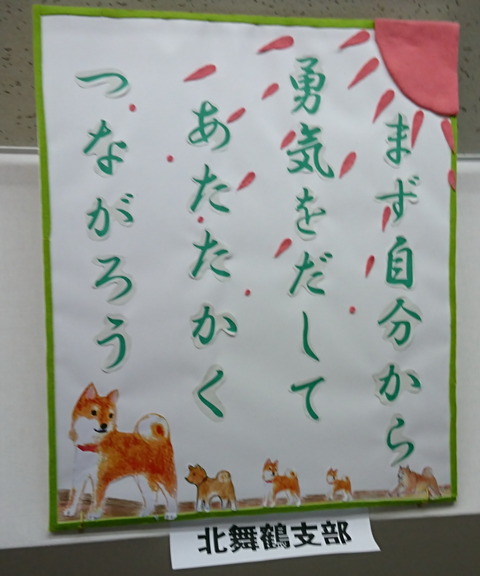 まず自分から
勇気をだして
あたたかく
つながろう
北舞鶴支部